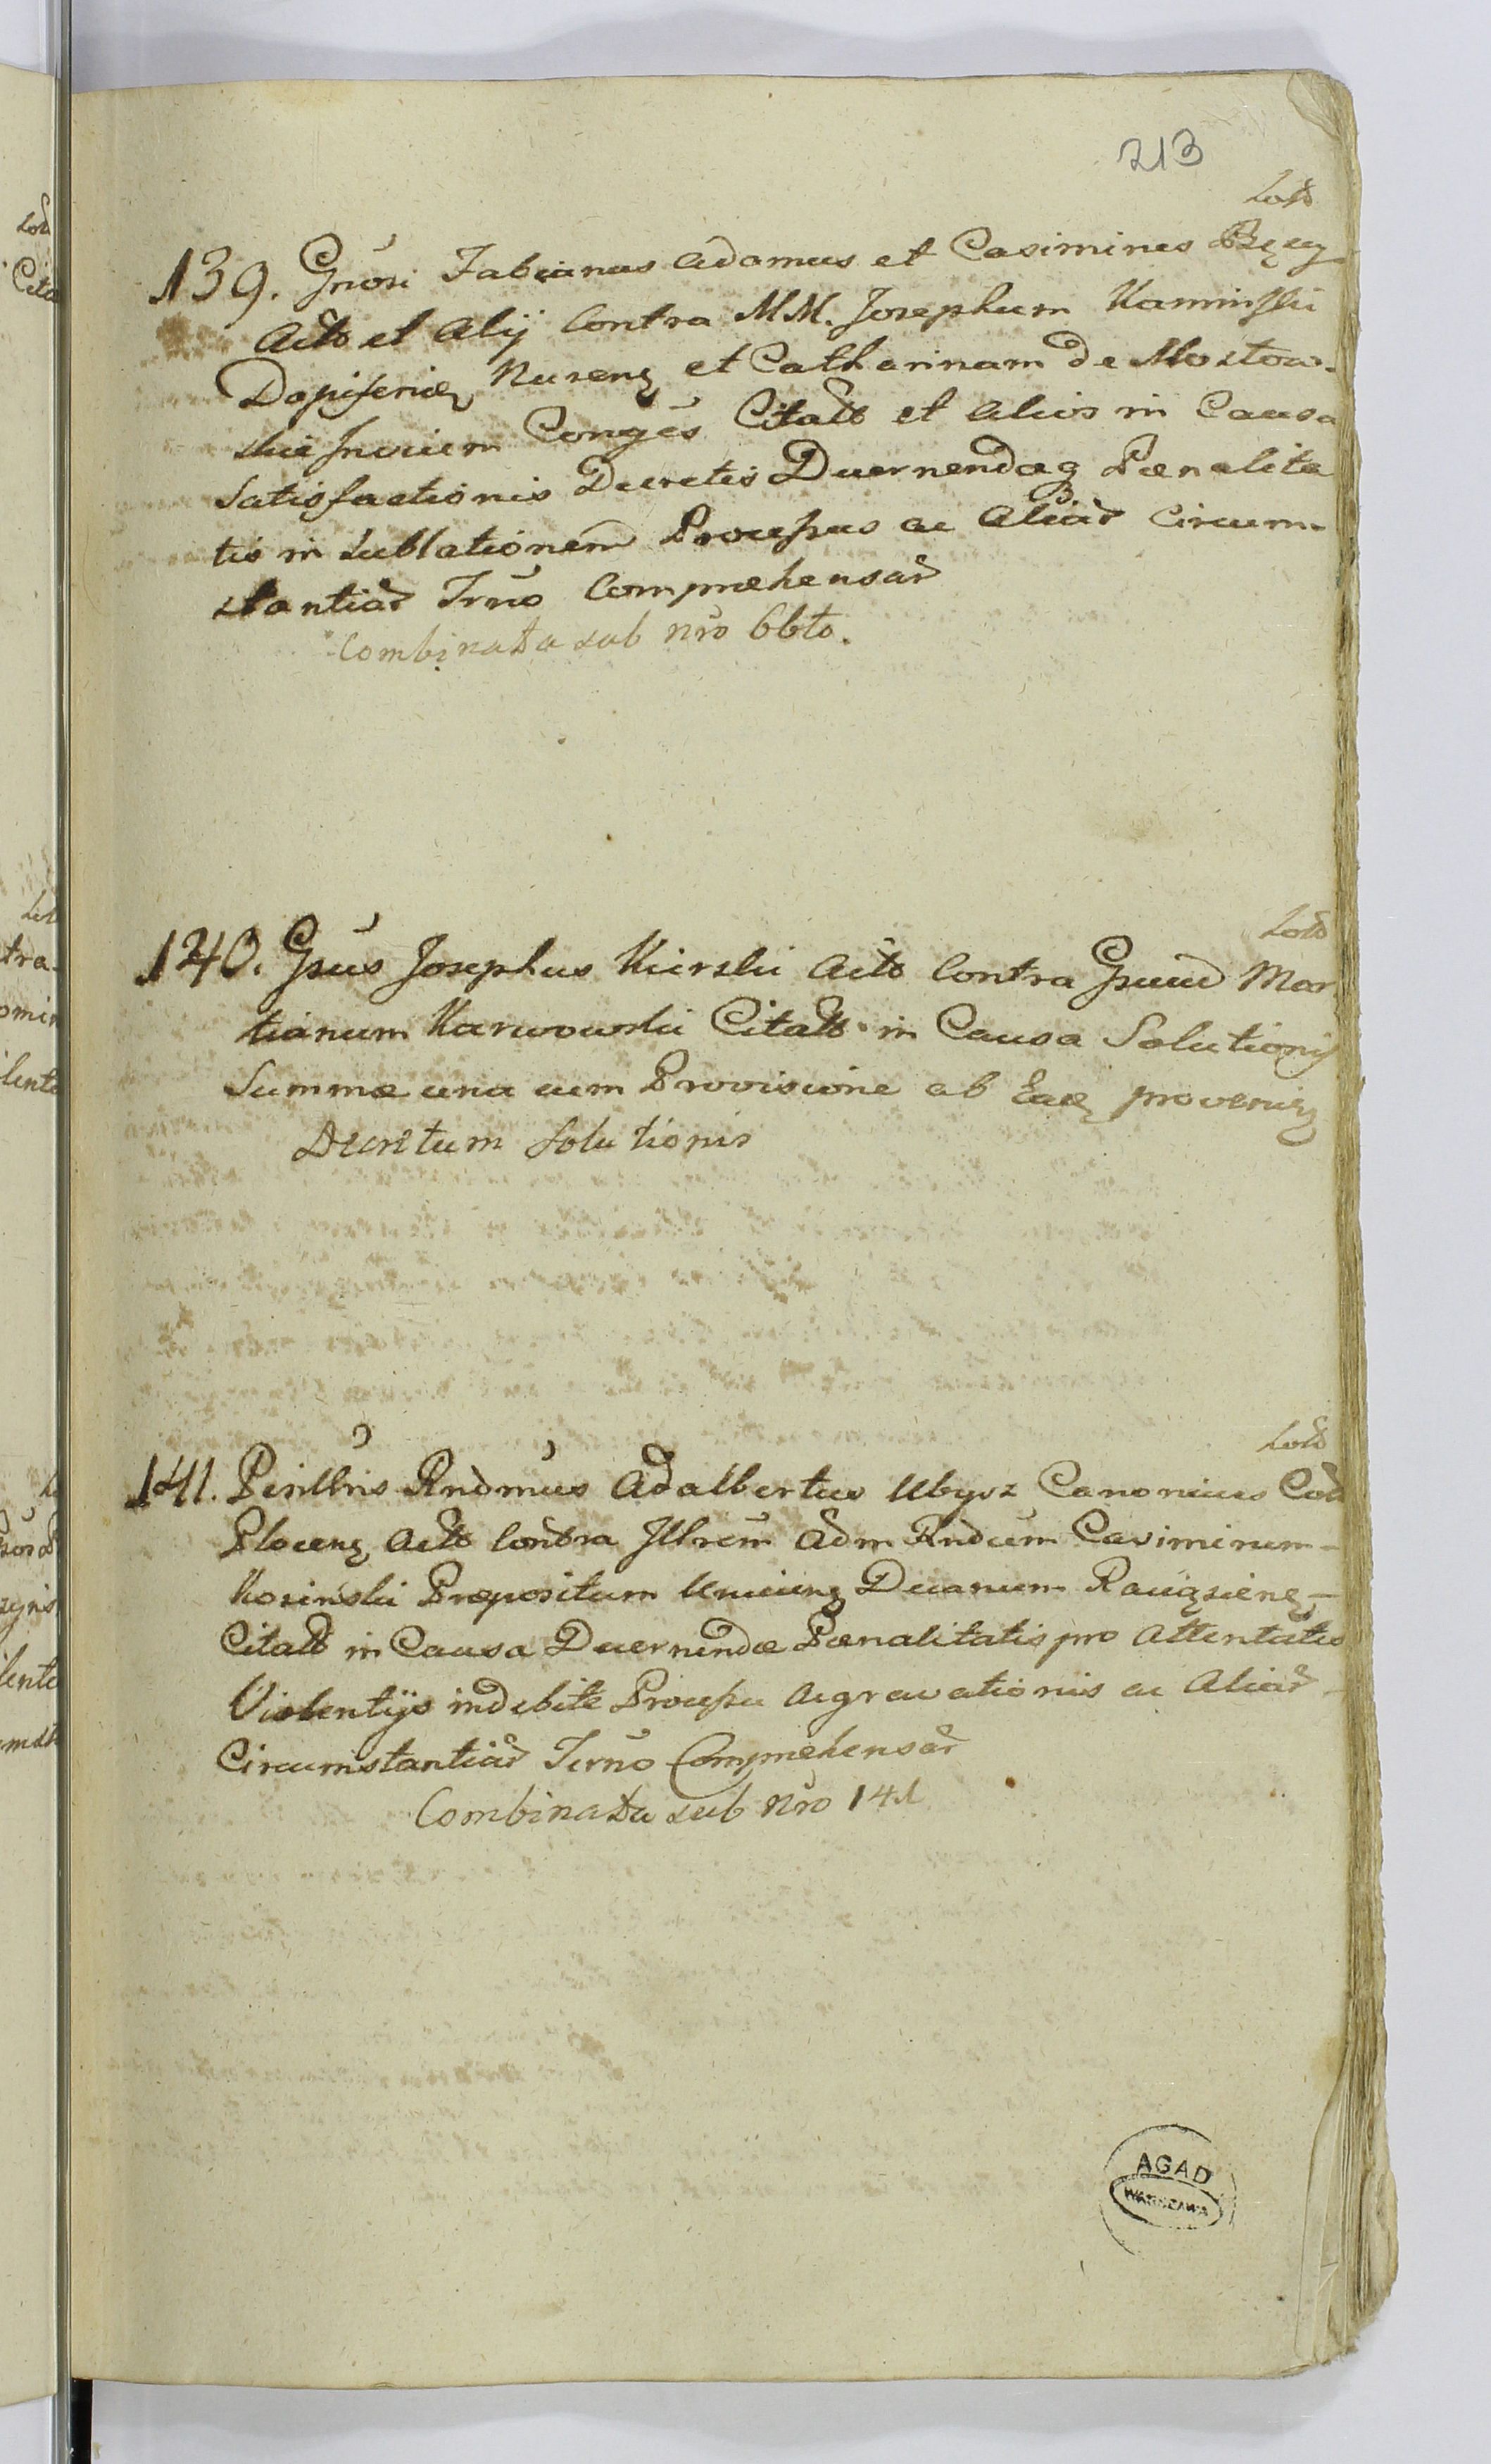 213
Lotd
139. Gnōsi Fabianus Adamus et Casimirus
Actō et Alij Contra MM. Josephum Kaminski
Dapiferiū Nureng et Catharinam de Mostow-
skie Invicem Congēs Citatt et Alios in Causa
Satisfactionis Decretis Decernendaeq Paenalita
tis in Sublationem Processus ac Aliar Circum-
stantiar Trno Compraehensar
Combinata sub nro 66to.
Lotd
140. Gsus Josephus Kierski Acto Contra Gsum Mar
tianum Karwowski Citatt in Causa Solutionis
Summae una cum Provisione ab Eaq provenieng
Decretum Solutionis
Lotd
141. Perillris Rndmus Adalbertus Ubysz Canonicus Cath
Ploceng Acto Contra Illrem Adm Rndum Casimirum-
Kosinski Praepositum Decanum Raciązieng-
Citatt in Causa Decernendae Paenalitatis pro Attentatis
Violentijs indebite Processu Aggravationis ac Aliar-
Circumstantiar Terno Compraehensar
Combinata sub Nro 141
AGAD
WARSZAWA
Cita
tra-
omin
lento